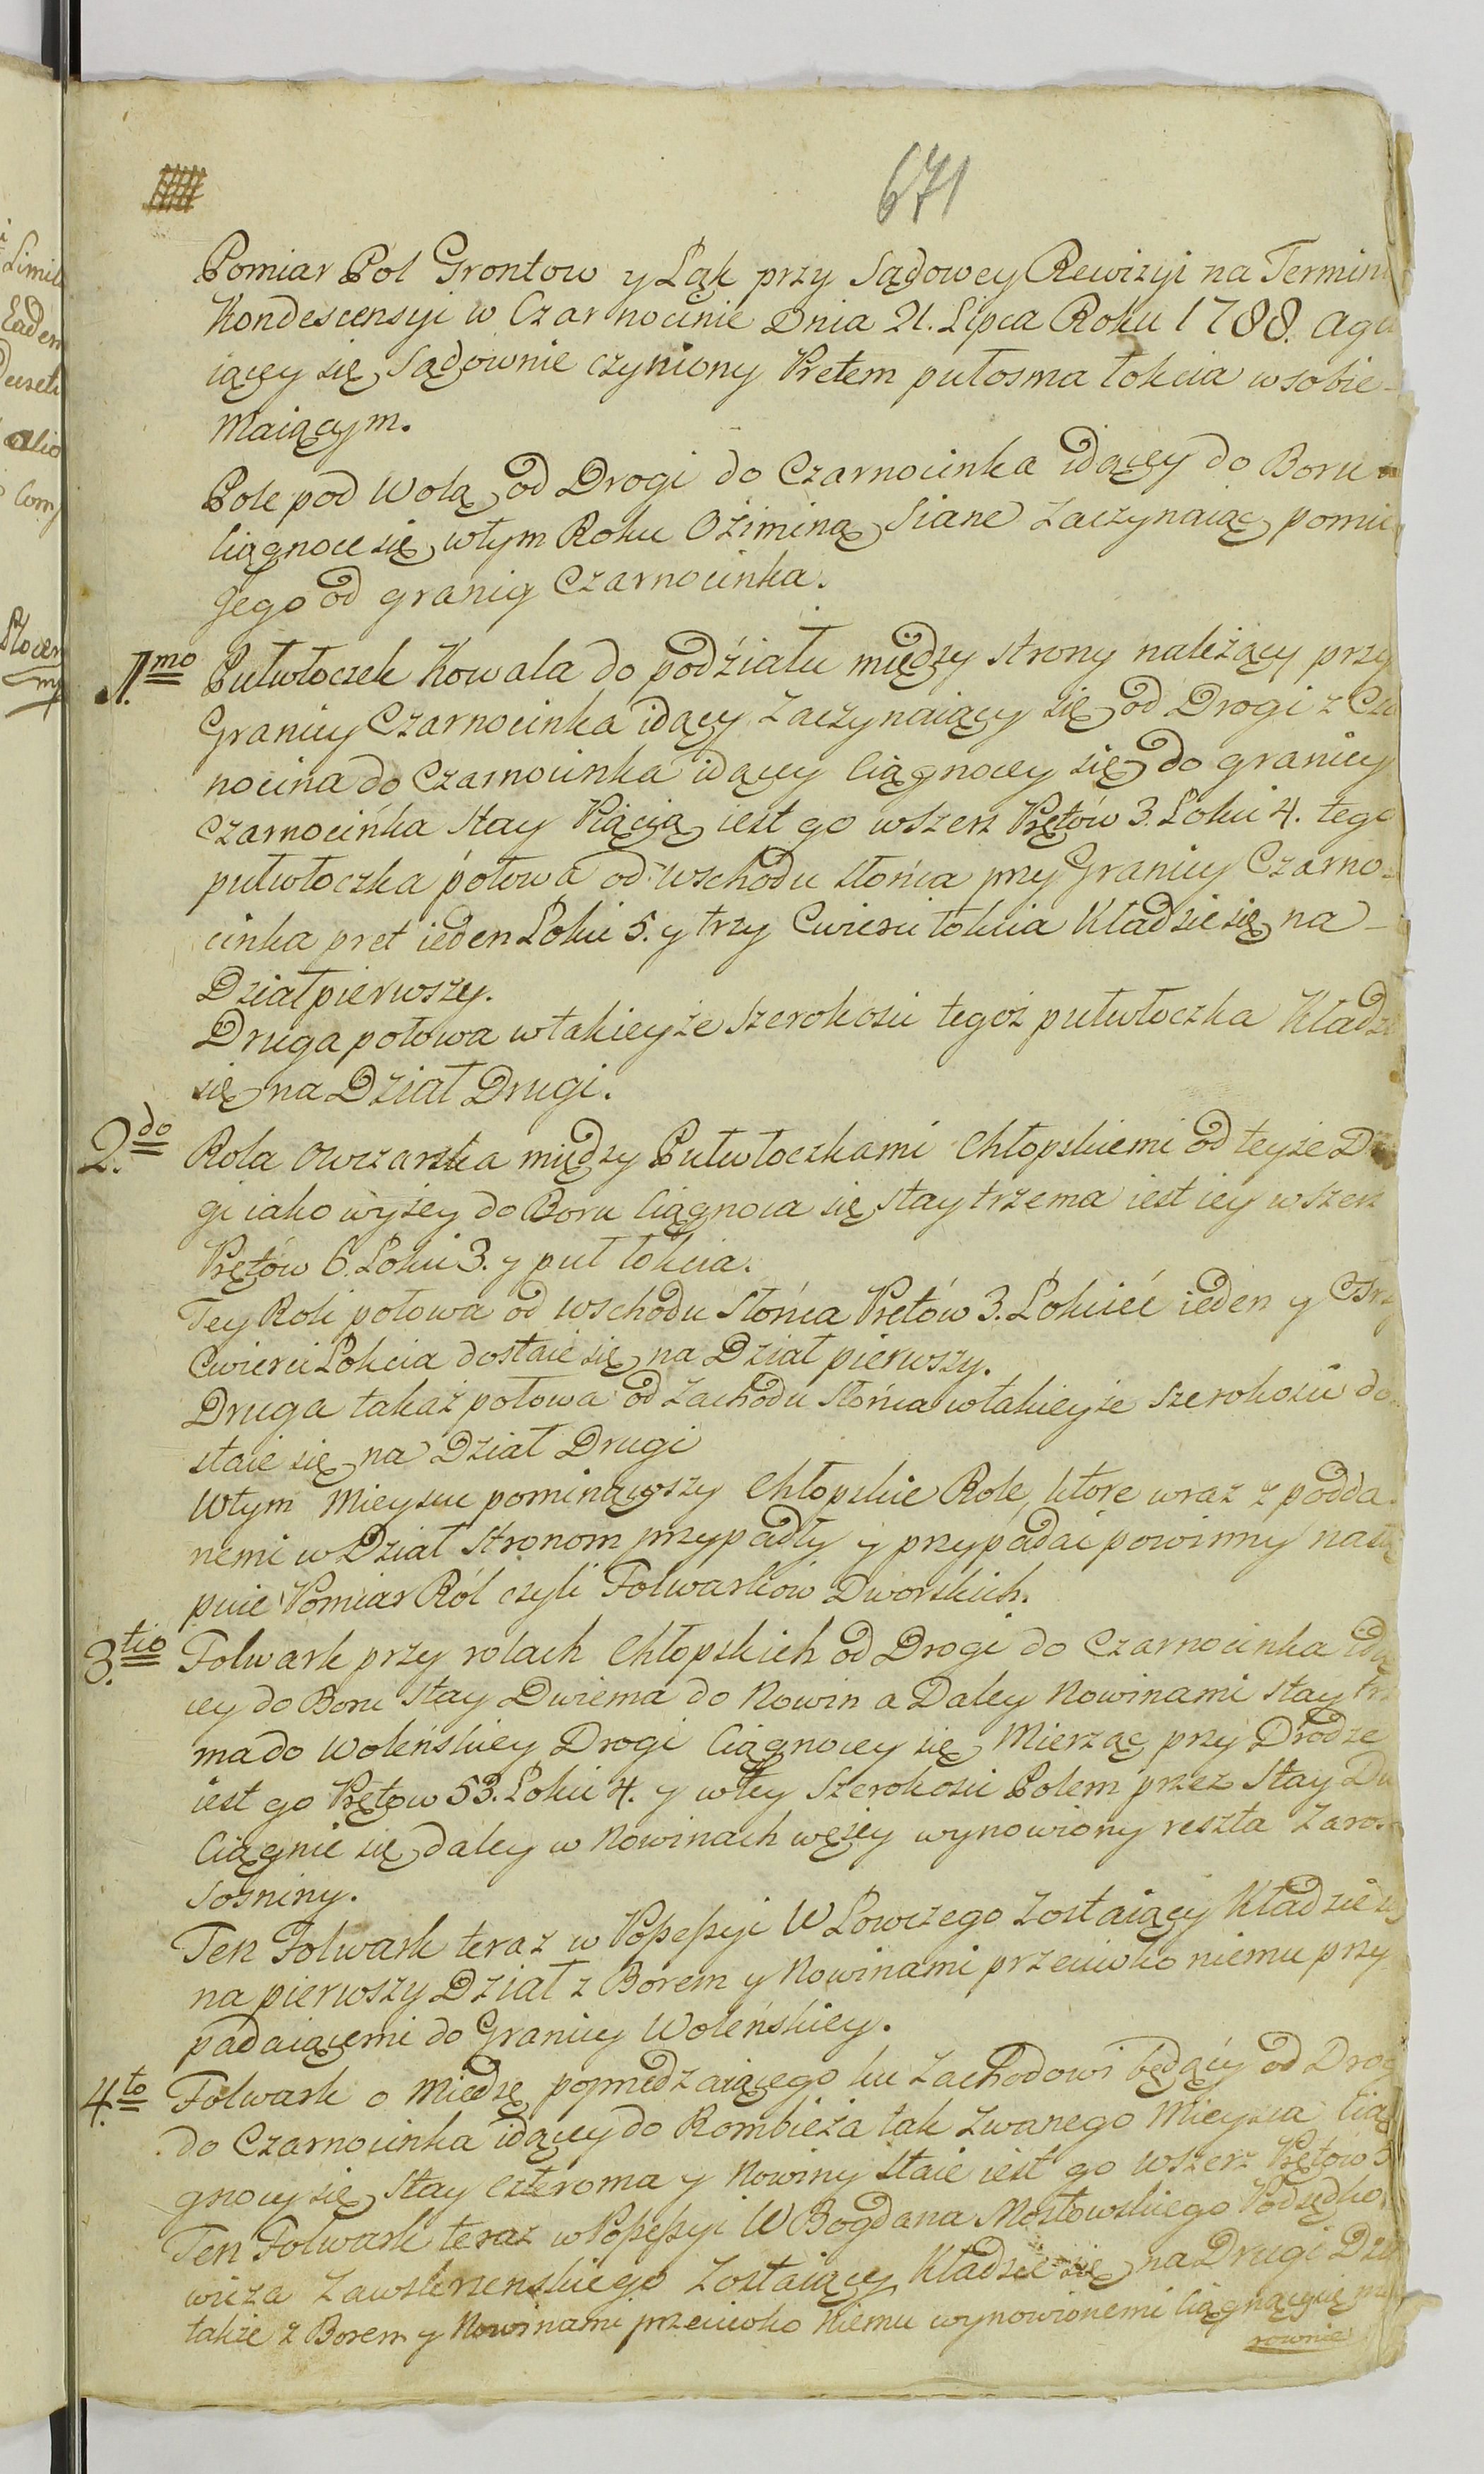 671
Pomiar Pol Grontow y Łąk przy Sądowey Rewizyi na Termini
Kondescensyi w Czarnocinie Dnia 21. Lipca Roku 1788. agu
iącey się Sądownie czyniony Prętem pułosma łokcia wsobie
maiącym.
Pole pod Wolą od Drogi do Czarnocinka idącey do Boru
ciągnoce się wtym Roku Oziminą Siane zaczynaiąc pomi
Jego od granicy Czarnocinka.
1mo Pułwłoczek Kowala do podziału między strony należący przy
Granicy Czarnocinka idący zaczynaiący się od Drogi z Cza
nocina do Czarnocinka idącey ciągnocy się do granicy
Czarnocińka stay Piącią iest go wszerz Prętów 3. Łokci 4. tego
pułwłoczka połowa od wschodu słońca przy Granicy Czarno-
cinka pret ieden Łokci 5. y trzy Cwierci łokcia kładzie się na
Dział pierwszy.
Druga połowa wtakieyże szerokosci tegoż pułwłoczka kładzi
się na Dział Drugi.
2do Rola Owczarska między Pułwłoczkami Chłopskiemi od teyże Dro
gi iako wyżey do Boru ciągnoca się stay trzema iest iey wszerz
Prętów 6. Łokci 3. y puł łokcia.
Tey Roli połowa od wschodu Słońca Prętów 3. Łokieć ieden y Trzy
Cwierci Łokcia dostaie się na Dział pierwszy.
Druga takaż połowa od zachodu słońca wtakieyże szerokosci do
staie się na Dział Drugi
Wtym Mieyscu pominąwszy Chłopskie Role, które wraz z podda
nemi w Dział stronom przypadły y przypadać powinny nastę
puie Pomiar Ról czyli Folwarków Dworskich.
3tio Folwark przy rolach Chłopskich od Drogi do Czarnocinka idą
cey do Boru stay Dwiema do Nowin a Daley Nowinami stay trze
ma do Woleńskiey Drogi ciągnocey się Mierząc przy Drodze
iest go Prętow 53. Łokci 4. y wtey szerokosci Polem przez stay Dw
ciągnie się daley w Nowinach węzey wynowiony reszta zaros
sosniny.
Ten Folwark teraz w Possessyi W Łowczego zostaiący kładzie się
na pierwszy Dział z Borem y Nowinami przeciwko niemu przy
padaiącemi do Granicy Woleńskiey.
4to Folwark o miedzę poprzedzaiącego ku zachodowi będący od Drog
do Czarnocinka idącey do Rombieża tak zwanego Mieysca cią
gnocy się stay czteroma y Nowiny staie iest go wszerz Prętów
Ten Folwark teraz w Possessyi W Bogdana Mostowskiego Podsędko
wicza Zawskrzenskiego zostaiący kładzie się na Drugi Dzia
także z Borem y Nowinami przeciwko niemu wynowionemi ciągnącym
rownie